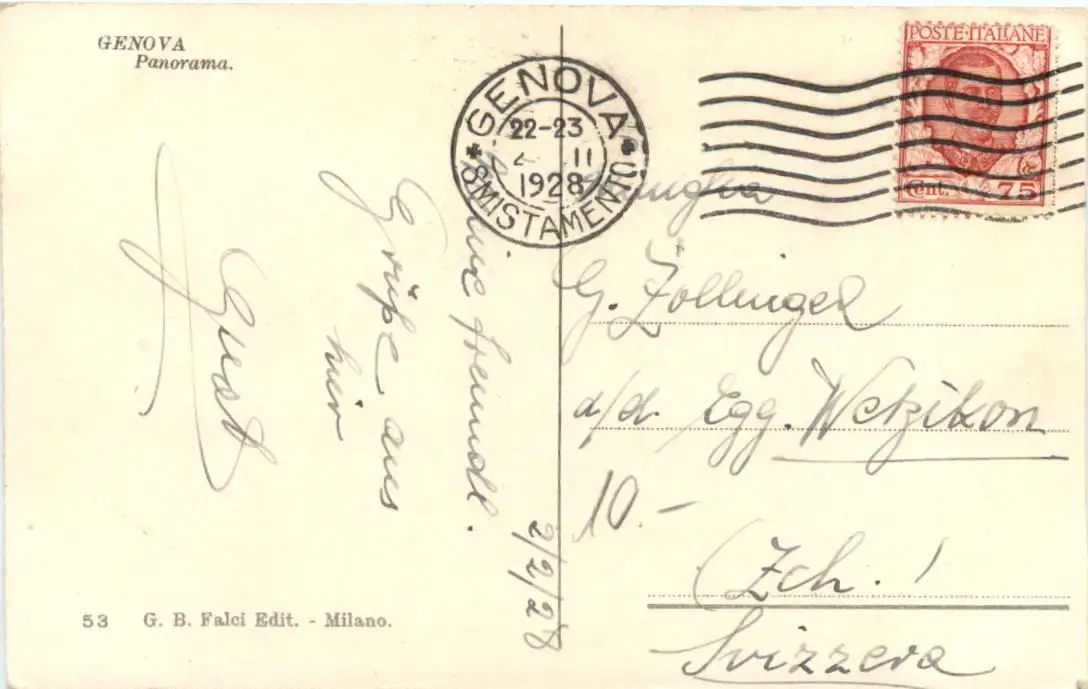 GENOVA
Panorama.
POSTE·ITALIANE
Cent. 75
GENOVA
22-23
2 II
1928
SMISTAMENTO
2/2/28
freundl.
Grüße aus
hier
G. Zollinger
a/d. Egg. Wetzikon
10.-
(Zch.)
Svizzera
53 G. B. Falci Edit. - Milano.